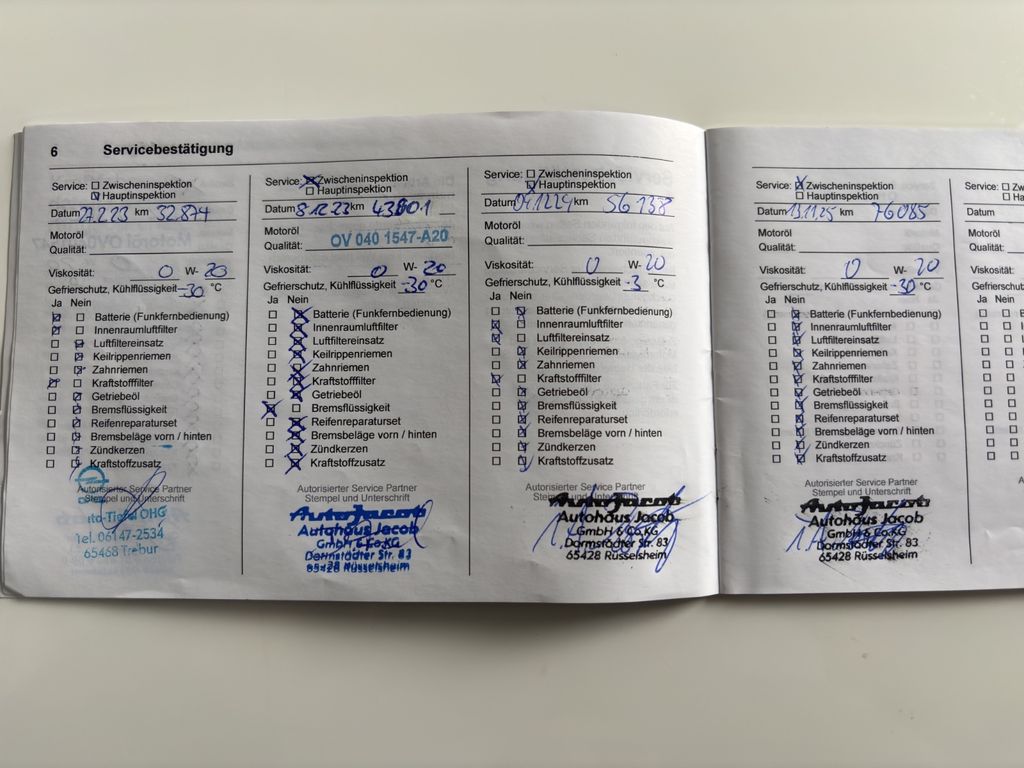 6 Servicebestätigung
Service: Zwischeninspektion
Hauptinspektion
Datum 27.2.23 km 32.874
Motoröl
Qualität:
Viskosität: 0 W- 20
Gefrierschutz, Kühlflüssigkeit -30 °C
Ja Nein
Batterie (Funkfernbedienung)
Innenraumluftfilter
Luftfiltereinsatz
Keilrippenriemen
Zahnriemen
Kraftstofffilter
Getriebeöl
Bremsflüssigkeit
Reifenreparaturset
Bremsbeläge vorn / hinten
Zündkerzen
Kraftstoffzusatz
Autorisierter Service Partner
Stempel und Unterschrift
OHG
Tel. 06147-2534
65468 Trebur
Service: Zwischeninspektion
Hauptinspektion
Datum 8.12.23 km 43801
Motoröl
Qualität: OV 040 1547-A20
Viskosität: 0 W- 20
Gefrierschutz, Kühlflüssigkeit -30 °C
Ja Nein
Batterie (Funkfernbedienung)
Innenraumluftfilter
Luftfiltereinsatz
Keilrippenriemen
Zahnriemen
Kraftstofffilter
Getriebeöl
Bremsflüssigkeit
Reifenreparaturset
Bremsbeläge vorn / hinten
Zündkerzen
Kraftstoffzusatz
Autorisierter Service Partner
Stempel und Unterschrift
Auto Jacob
Autohaus Jacob
GmbH & Co.KG
Darmstädter Str. 83
65428 Rüsselsheim
Service: Zwischeninspektion
Hauptinspektion
Datum km 56138
Motoröl
Qualität:
Viskosität: 0 W- 20
Gefrierschutz, Kühlflüssigkeit -3 °C
Ja Nein
Batterie (Funkfernbedienung)
Innenraumluftfilter
Luftfiltereinsatz
Keilrippenriemen
Zahnriemen
Kraftstofffilter
Getriebeöl
Bremsflüssigkeit
Reifenreparaturset
Bremsbeläge vorn / hinten
Zündkerzen
Kraftstoffzusatz
Autorisierter Service Partner
Stempel und Unterschrift
Auto Jacob
Autohaus Jacob
GmbH & Co.KG
Darmstädter Str. 83
65428 Rüsselsheim
Service: Zwischeninspektion
Hauptinspektion
Datum 13.11.25 km 76085
Motoröl
Qualität:
Viskosität: 0 W- 20
Gefrierschutz, Kühlflüssigkeit -30 °C
Ja Nein
Batterie (Funkfernbedienung)
Innenraumluftfilter
Luftfiltereinsatz
Keilrippenriemen
Zahnriemen
Kraftstofffilter
Getriebeöl
Bremsflüssigkeit
Reifenreparaturset
Bremsbeläge vorn / hinten
Zündkerzen
Kraftstoffzusatz
Autorisierter Service Partner
Stempel und Unterschrift
Auto Jacob
Autohaus Jacob
GmbH & Co.KG
Darmstädter Str. 83
65428 Rüsselsheim
Service: Zw
Ha
Datum
Motoröl
Qualität:
Viskosität:
Gefrierschutz
Ja Nein